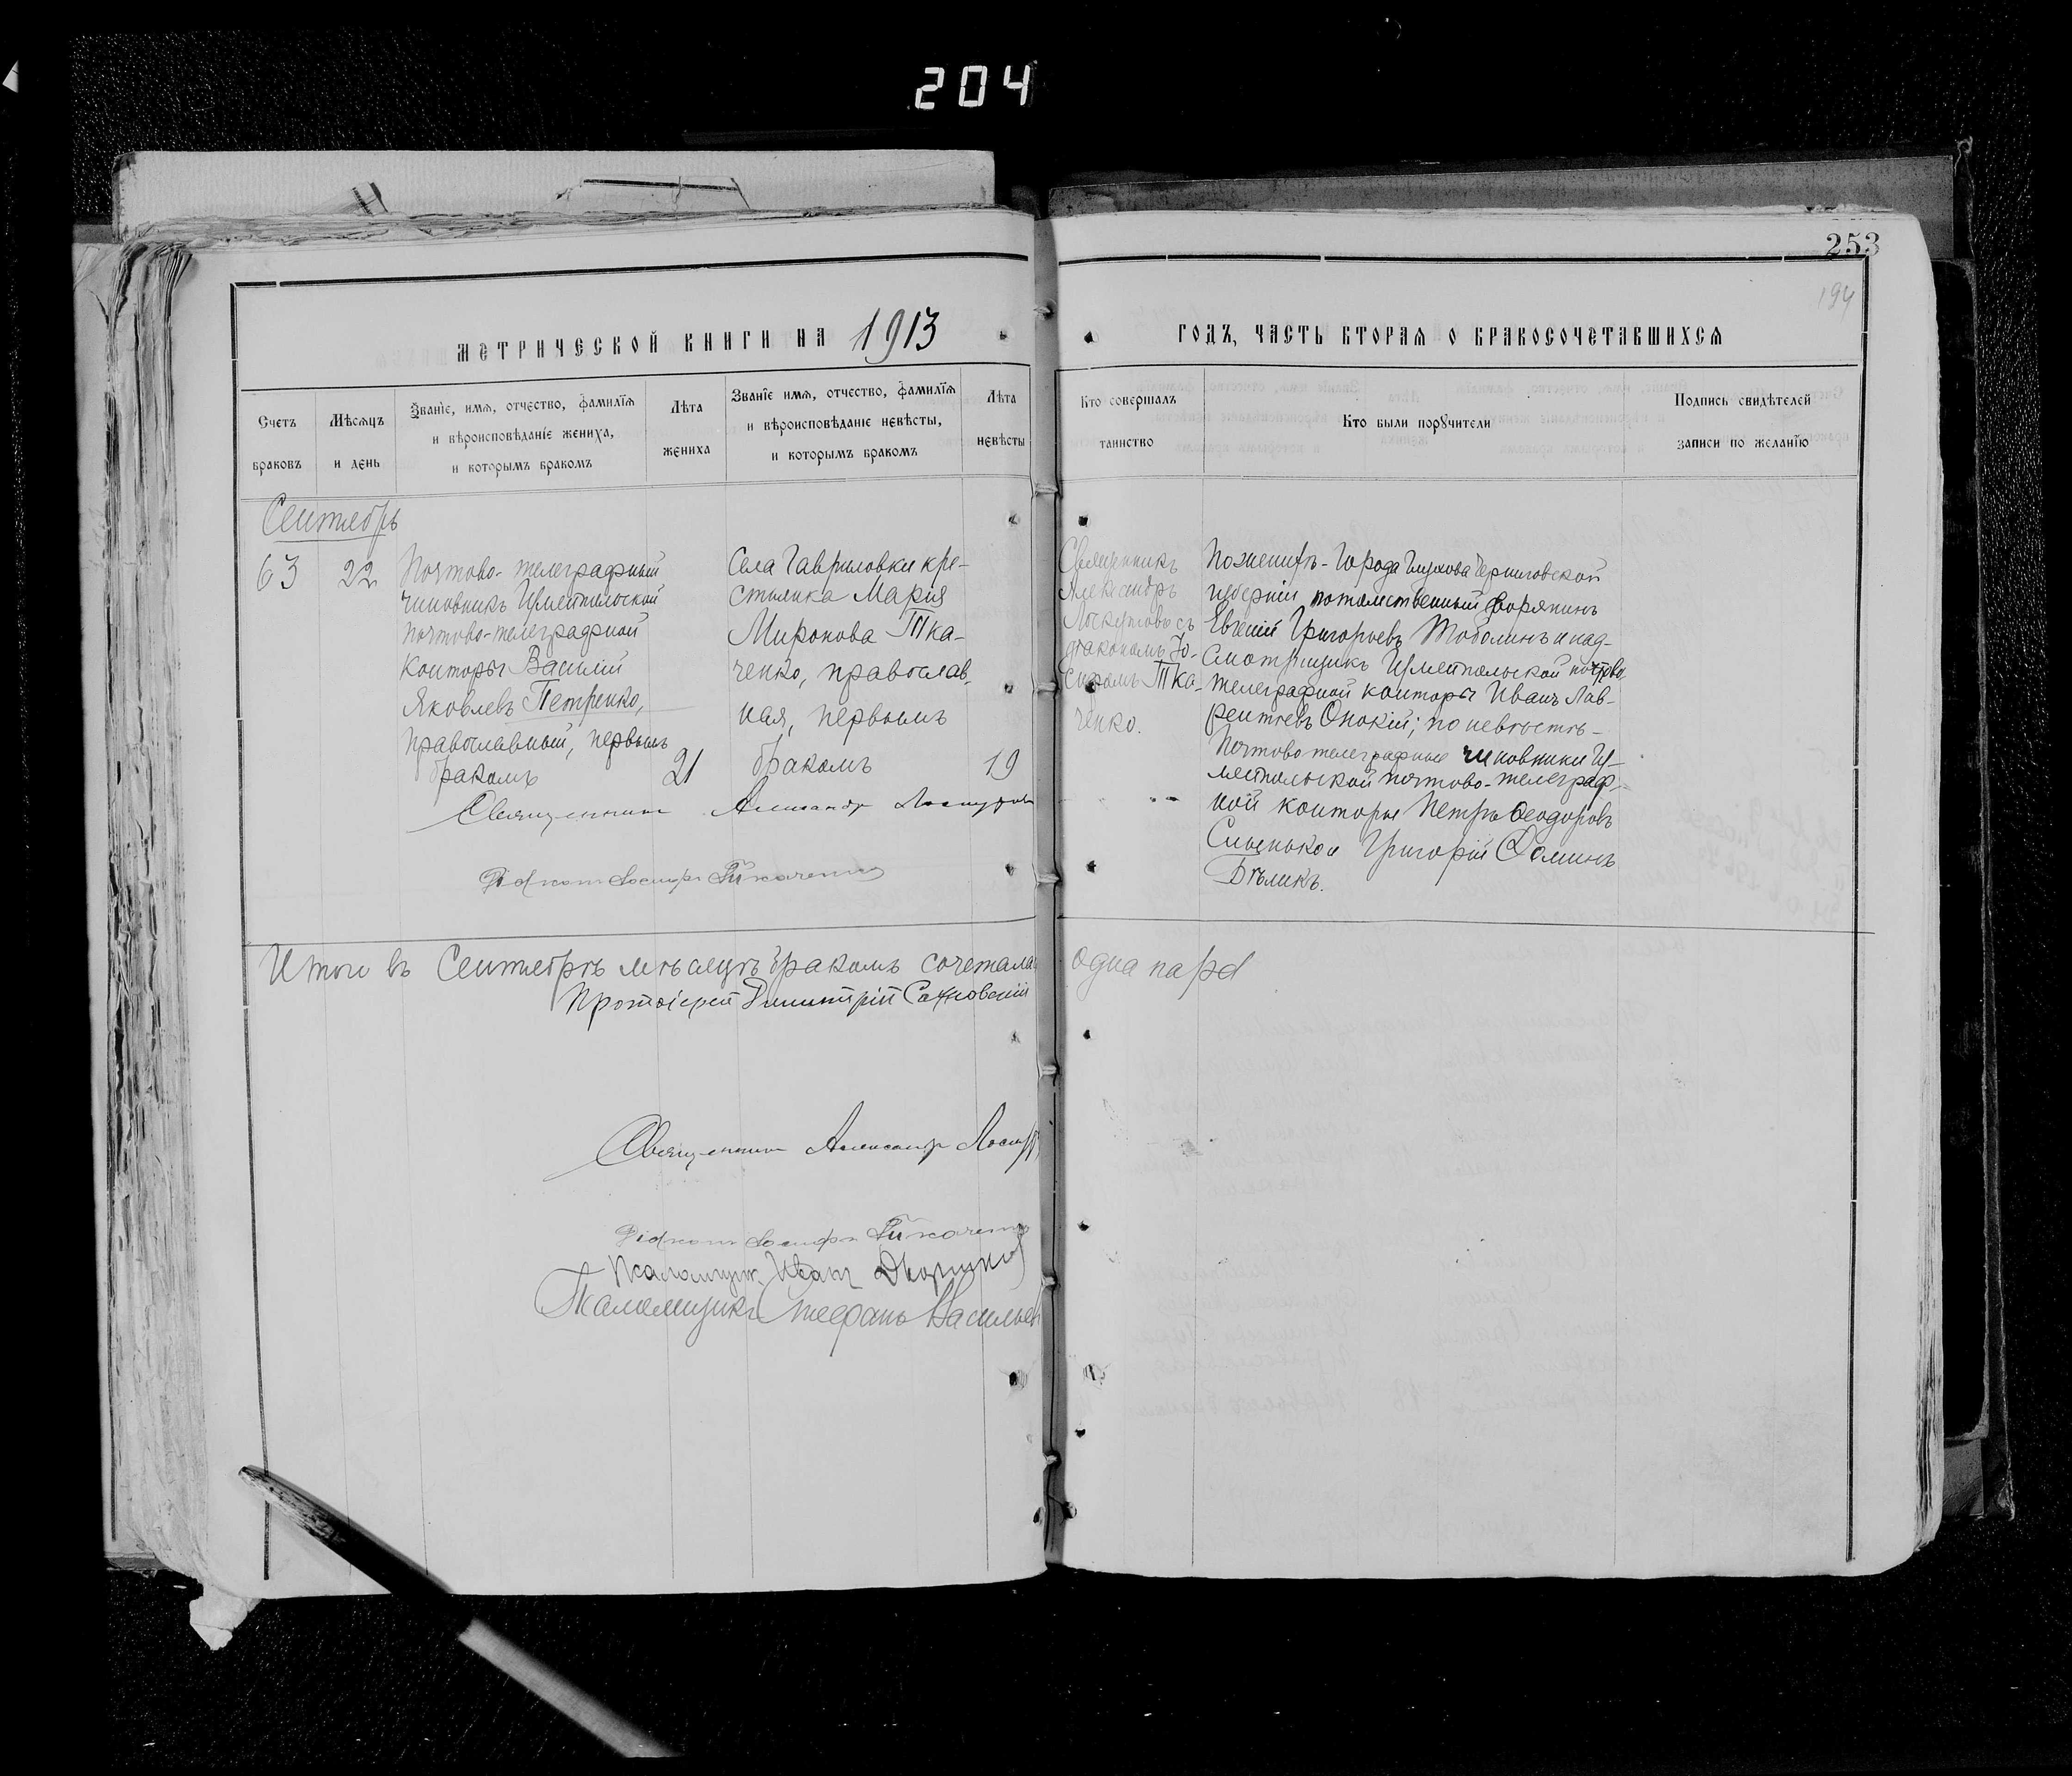 204
253
194
МЕТРИЧЕСКОЙ КНИГИ НА 1913
ГОДЪ, ЧАСТЬ ВТОРАЯ О БРАКОСОЧЕТАВШИХСЯ
Счетъ
браковъ
Мѣсяцъ
и день
Званіе, имя, отчество, фамилія
и вѣроисповѣданіе жениха,
и которымъ бракомъ
Лѣта
жениха
Званіе имя, отчество, фамилія
и вѣроисповѣданіе невѣсты,
и которымъ бракомъ
Лѣта
невѣсты
Кто совершалъ
таинство
Кто были поручители
Подпись свидѣтелей
записи по желанію
Сентябрь
63
22
Почтово-телеграфный
чиновникъ
почтово-телеграфной
конторы Василій
Яковлевъ Петренко,
православный, первымъ
бракомъ
21
Села Гавриловки кре-
стьянка Марія
Миронова Тка-
ченко, православ-
ная, первымъ
бракомъ
19
Священникъ
Александръ
съ
діакономъ Іо-
сифомъ Тка-
ченко.
По женихѣ - города Глухова Черниговской
губерніи потомственный дворянинъ
Евгеній Григорьевъ и над-
смотрщикъ почтово-
телеграфной конторы Иванъ Лав-
рентьевъ по невѣстѣ -
Почтово-телеграфные чиновники
почтово-телеграф-
ной конторы Петръ Ѳеодоровъ
Григорій Ѳоминъ
Бѣликъ.
Священникъ Александръ
Діаконъ Іосифъ Ткаченко
Итого въ Сентябрѣ мѣсяцѣ бракомъ сочеталась одна пара
Протоіерей Димитрій
Священникъ Александръ
Діаконъ Іосифъ Ткаченко
Псаломщикъ Иванъ
Псаломщикъ Стефанъ Васильевъ